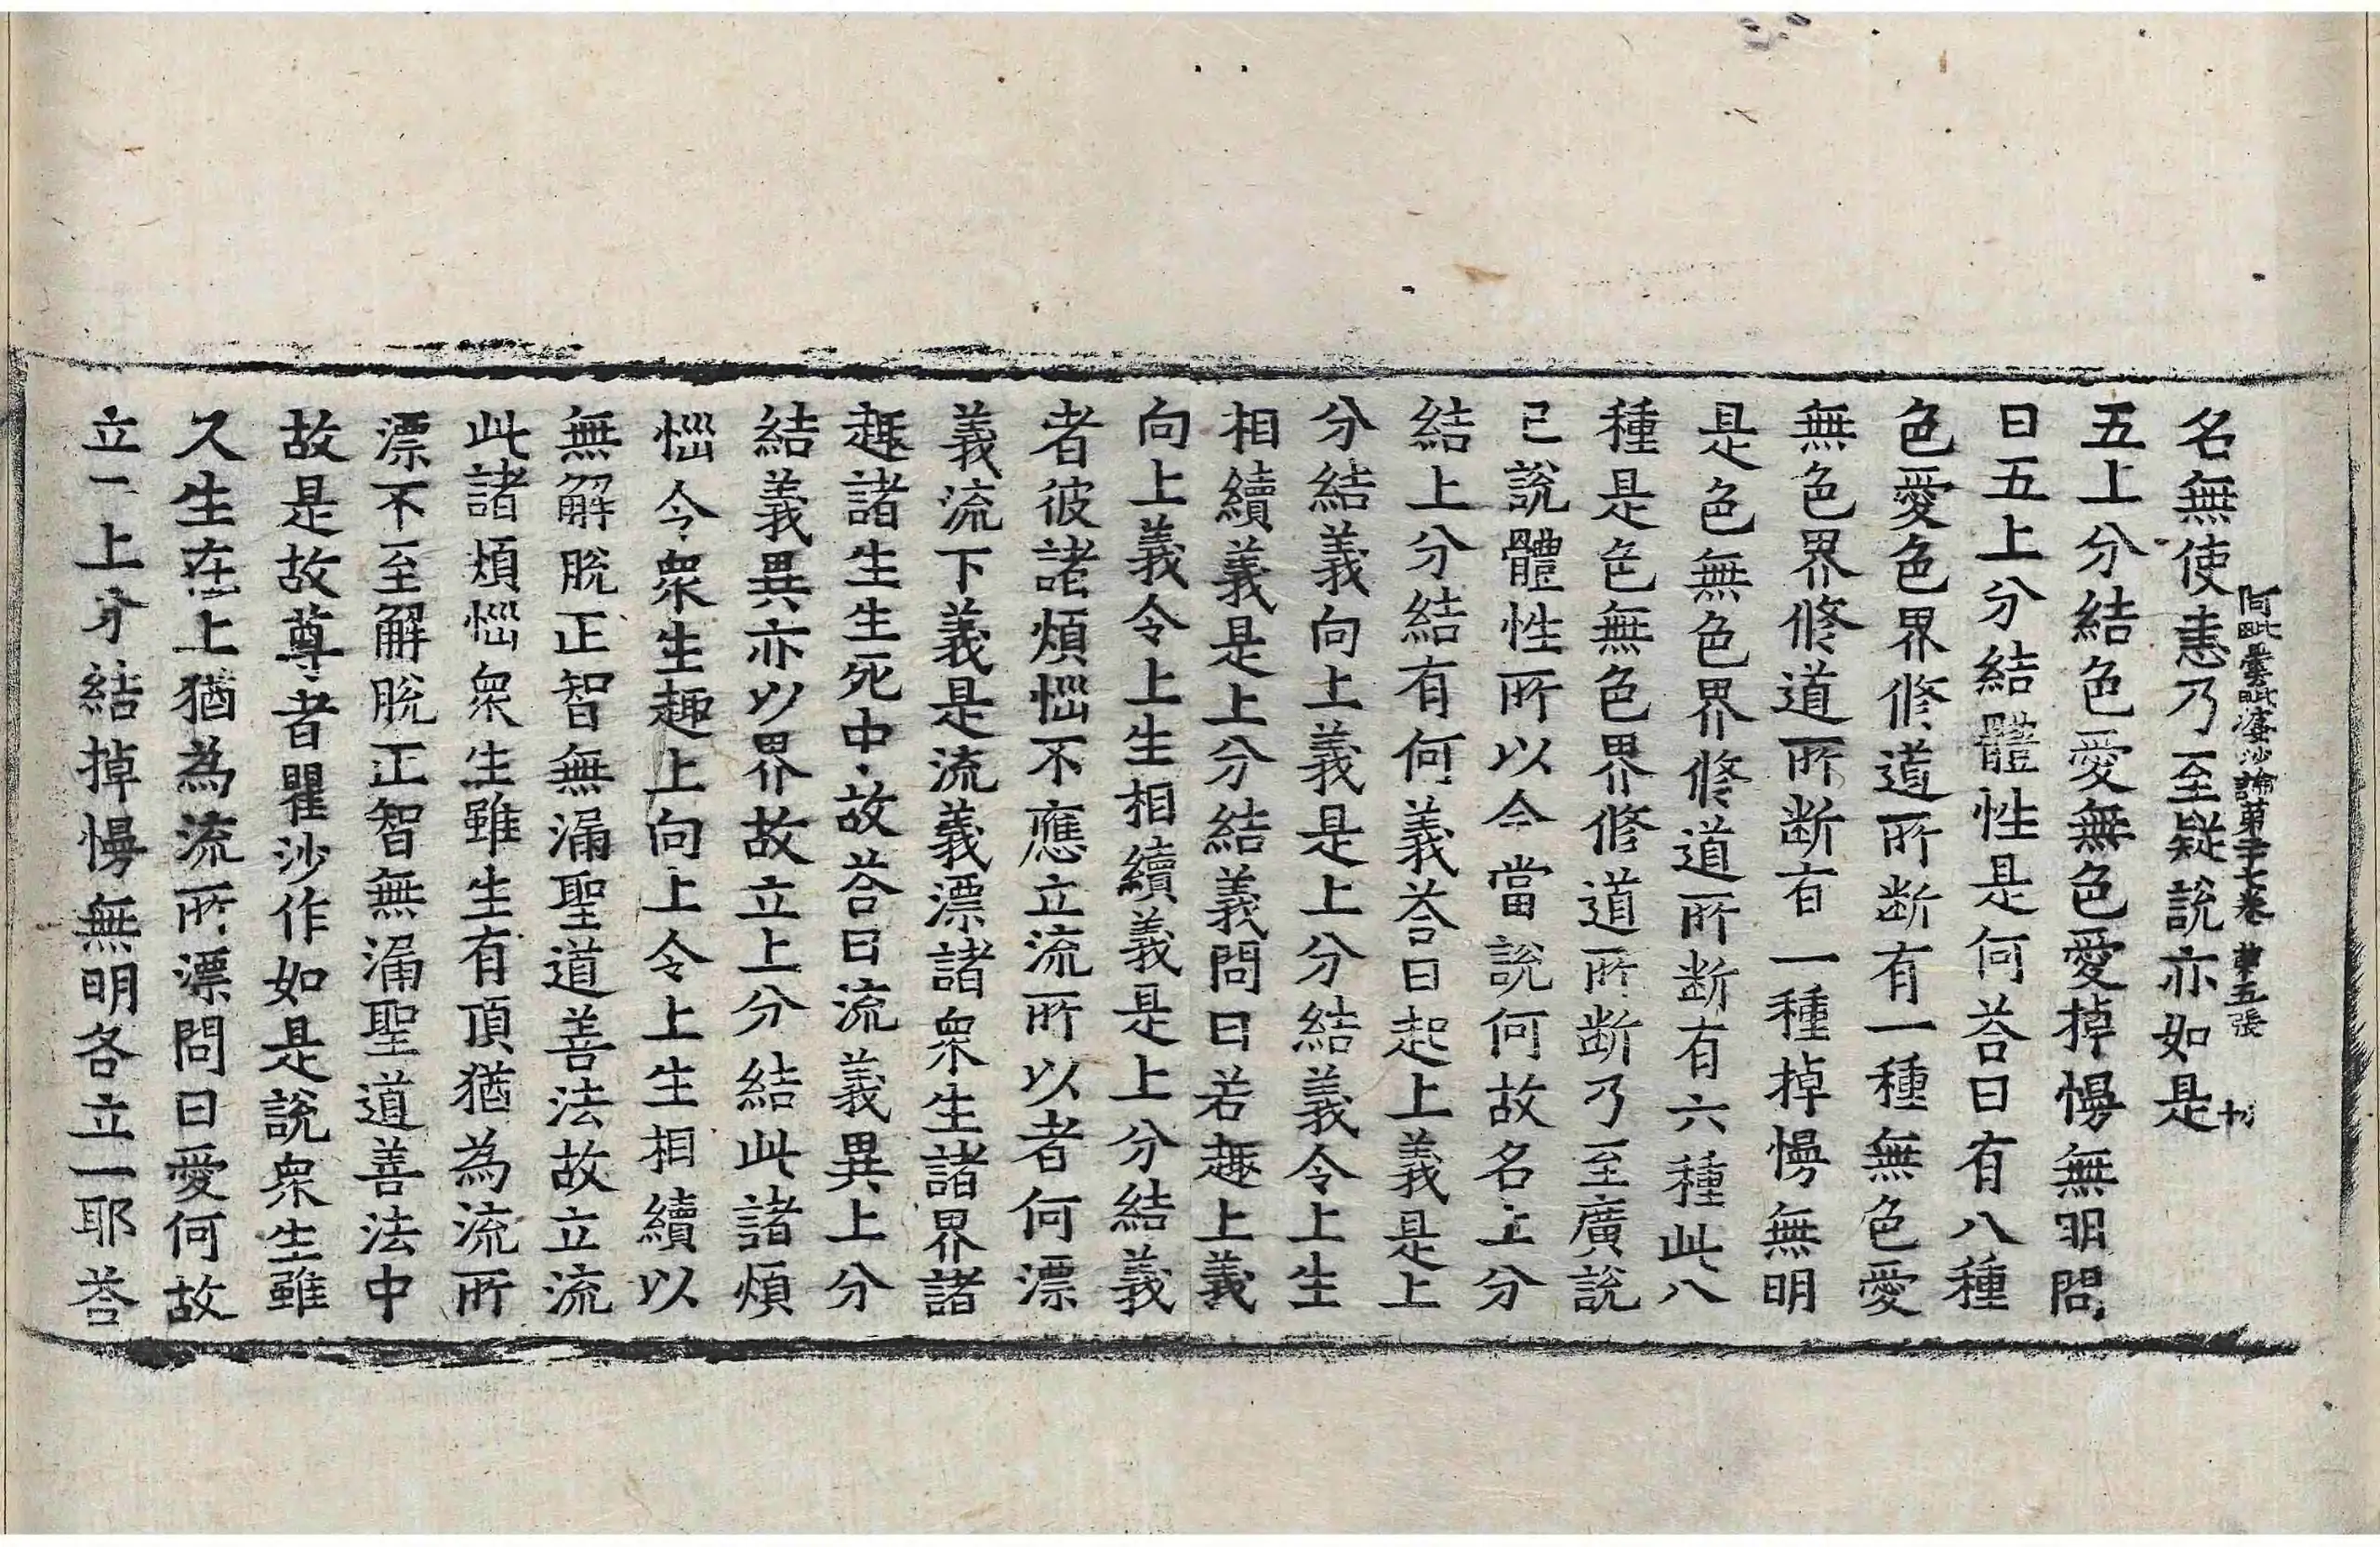 名無使恚乃至疑說亦如是
阿毗曇毗婆沙論第二十七卷 第五張
五上分結色愛無色愛掉慢無明問
曰五上分結體性是何荅曰有八種
色愛色界修道所断有一種無色愛
無色界修道所断有一種掉慢無明
是色無色界修道所断有六種此八
種是色無色界修道所断乃至廣說
已說體性所以今當說何故名上分
結上分結有何義荅曰起上義是上
分結義向上義是上分結義令上生
相續義是上分結義問曰若趣上義
向上義令上生相續義是上分結義
者彼諸煩惱不應立流所以者何漂
義流下義是流義漂諸衆生諸界諸
趣諸生生死中故荅曰流義異上分
結義異亦以界故立上分結此諸煩
惱令衆生趣上向上令上生相續以
無解脫正智無漏聖道善法故立流
此諸煩惱衆生雖生有頂猶為流所
漂不至解脫正智無漏聖道善法中
故是故尊者瞿沙作如是說衆生雖
久生在上猶為流所漂問曰愛何故
立一上分結掉慢無明各立一耶荅